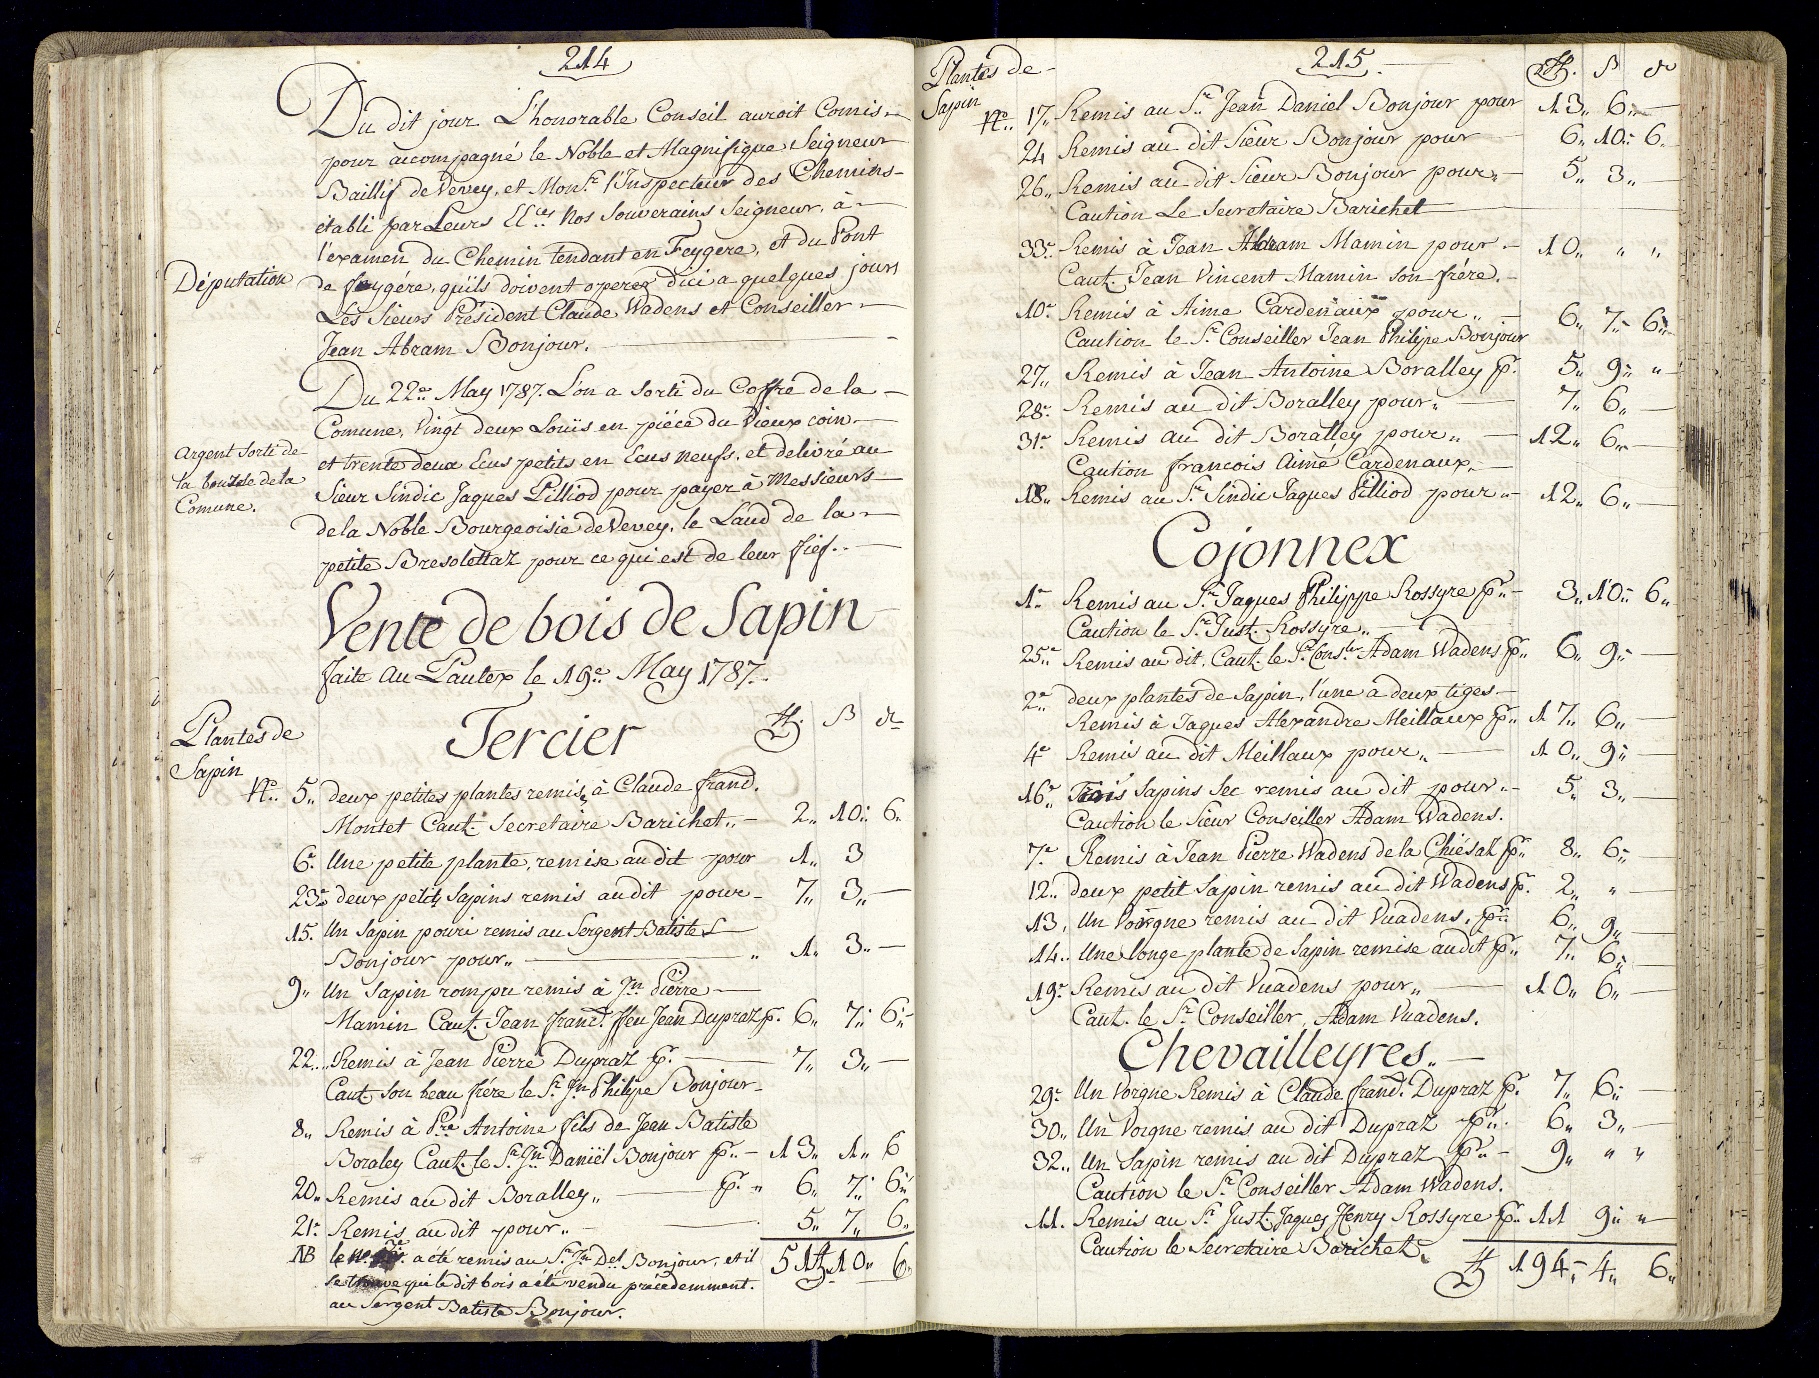 214
Du dit jour L'honorable Conseil auroit Comis
pour acompagné le Noble et Magnifique Seigneur
Baillif de Vevey, et Mons.r l'Inspecteur des Chemins
établi par Leurs EE.ces Nos Souverains Seigneur, à
l'examen du Chemin tendant en Feygere, et du Pont
Députation
de feygére, qu'ils doivent operer d'ici a quelques jours
Les Sieurs Président Claude Wadens et Conseiller
Jean Abram Bonjour.
Du 22.e May 1787. L'on a sorti du Coffre de la
Comune, Vingt deux Louïs en piéce du Vieux coin
Argent sorti de
la bourse de la
Comune.
et trente deux Ecus petits en Ecus neufs, et delivré au
Sieur Sindic Jaques Pilliod pour payer à Messieurs
de la Noble Bourgeoisie de Vevey, le Laud de la
petite Bresolettaz pour ce qui est de leur fief.
Vente de bois de Sapin
faite Au Pautex le 19.e May 1787.
Plantes de
Sapin
Tercier
₶. ß d.r
N.o 5. deux petites plantes remis, à Claude frand.
Montet Caut. Secretaire Barichet. 2. 10. 6.
6.e Une petite plante, remise au dit pour 1. 3
23.e deux petits Sapins remis au dit pour 7. 3. —
15. Un Sapin pouri remis au Sergent Batiste
Bonjour pour. — 1. 3. —
9. Un Sapin rompu remis à J.n Pierre
Mamin Caut. Jean frand. ffeu Jean Dupraz p.r 6. 7. 6.
22. Remis à Jean Pierre Dupraz p.r — 7. 3. —
Caut. son beau frére le S.r J.n Philipe Bonjour
8. Remis à P.re Antoine fils de Jean Batiste
Boraley Caut. le S.r J.n Daniël Bonjour p.r — 13. 1. 6
20. Remis au dit Boralley. — p.r 6. 7. 6.
21.e Remis au dit pour. — 5. 7. 6.
NB le N.o a été remis au S.r J.n Del. Bonjour, et il
51 ₶ 10. 6.
se trouve que le dit bois a été vendu précédemment.
au Sergent Batiste Bonjour.
215
Plantes de
Sapin
₶. ß d.r
N.o 17. Remis au S.r Jean Daniel Bonjour pour 13. 6. —
24 Remis au dit Sieur Bonjour pour 6. 10. 6.
26. Remis au dit Sieur Bonjour pour. 5. 3. —
Caution Le Secretaire Barichet
33.e Remis à Jean Abram Mamin pour. — 10. " "
Caut. Jean Vincent Mamin son frére.
10.e Remis à Aime Cardenaux pour. — 6. 7. 6.
Caution le S.r Conseiller Jean Philipe Bonjour
27. Remis à Jean Antoine Boralley p.r 5. 9. "
28.e Remis au dit Boralley pour. — 7. 6. —
31.e Remis au dit Boralley pour. — 12. 6. —
Caution francois Aimé Cardenaux.
18. Remis au S.r Sindic Jaques Pilliod pour. 12. 6. —
Cojonnex
1.e Remis au S.r Jaques Philippe Rossyre p.r 3. 10. 6.
Caution le S.r Just. Rossyre.
25.e Remis au dit, Caut. le S.r Cons.ler Adam Wadens p.r 6. 9. —
2.e deux plantes de Sapin, l'une a deux tiges
Remis à Jaques Alexandre Meillaux p.r 17. 6. —
4.e Remis au dit Meillaux pour. — 10. 9. —
16.e Trois Sapins Sec remis au dit pour. — 5. 3. —
Caution le Sieur Conseiller Adam Wadens.
7.e Remis à Jean Pierre Wadens de la Chiésaz p.r 8. 6. —
12. deux petit Sapin remis au dit Wadens p.r 2. " —
13. Un Vorgne remis au dit Vuadens. p.r 6. 9. —
14. Une longe plante de Sapin remise au dit p.r 7. 6. —
19.e Remis au dit Vuadens pour. — 10. 6. —
Caut. le S.r Conseiller, Adam Vuadens.
Chevailleyres.
29.e Un Vorgne Remis à Claude frand. Dupraz p.r 7. 6. —
30. Un Vorgne remis au dit Dupraz p.r 6. 3. —
32. Un Sapin remis au dit Dupraz p.r 9. " "
Caution le S.r Conseiller Adam Wadens.
11. Remis au S.r Just. Jaques Henry Rossyre p.r 11 9. "
Caution le Secretaire Barichet.
₶ 194. 4. 6.